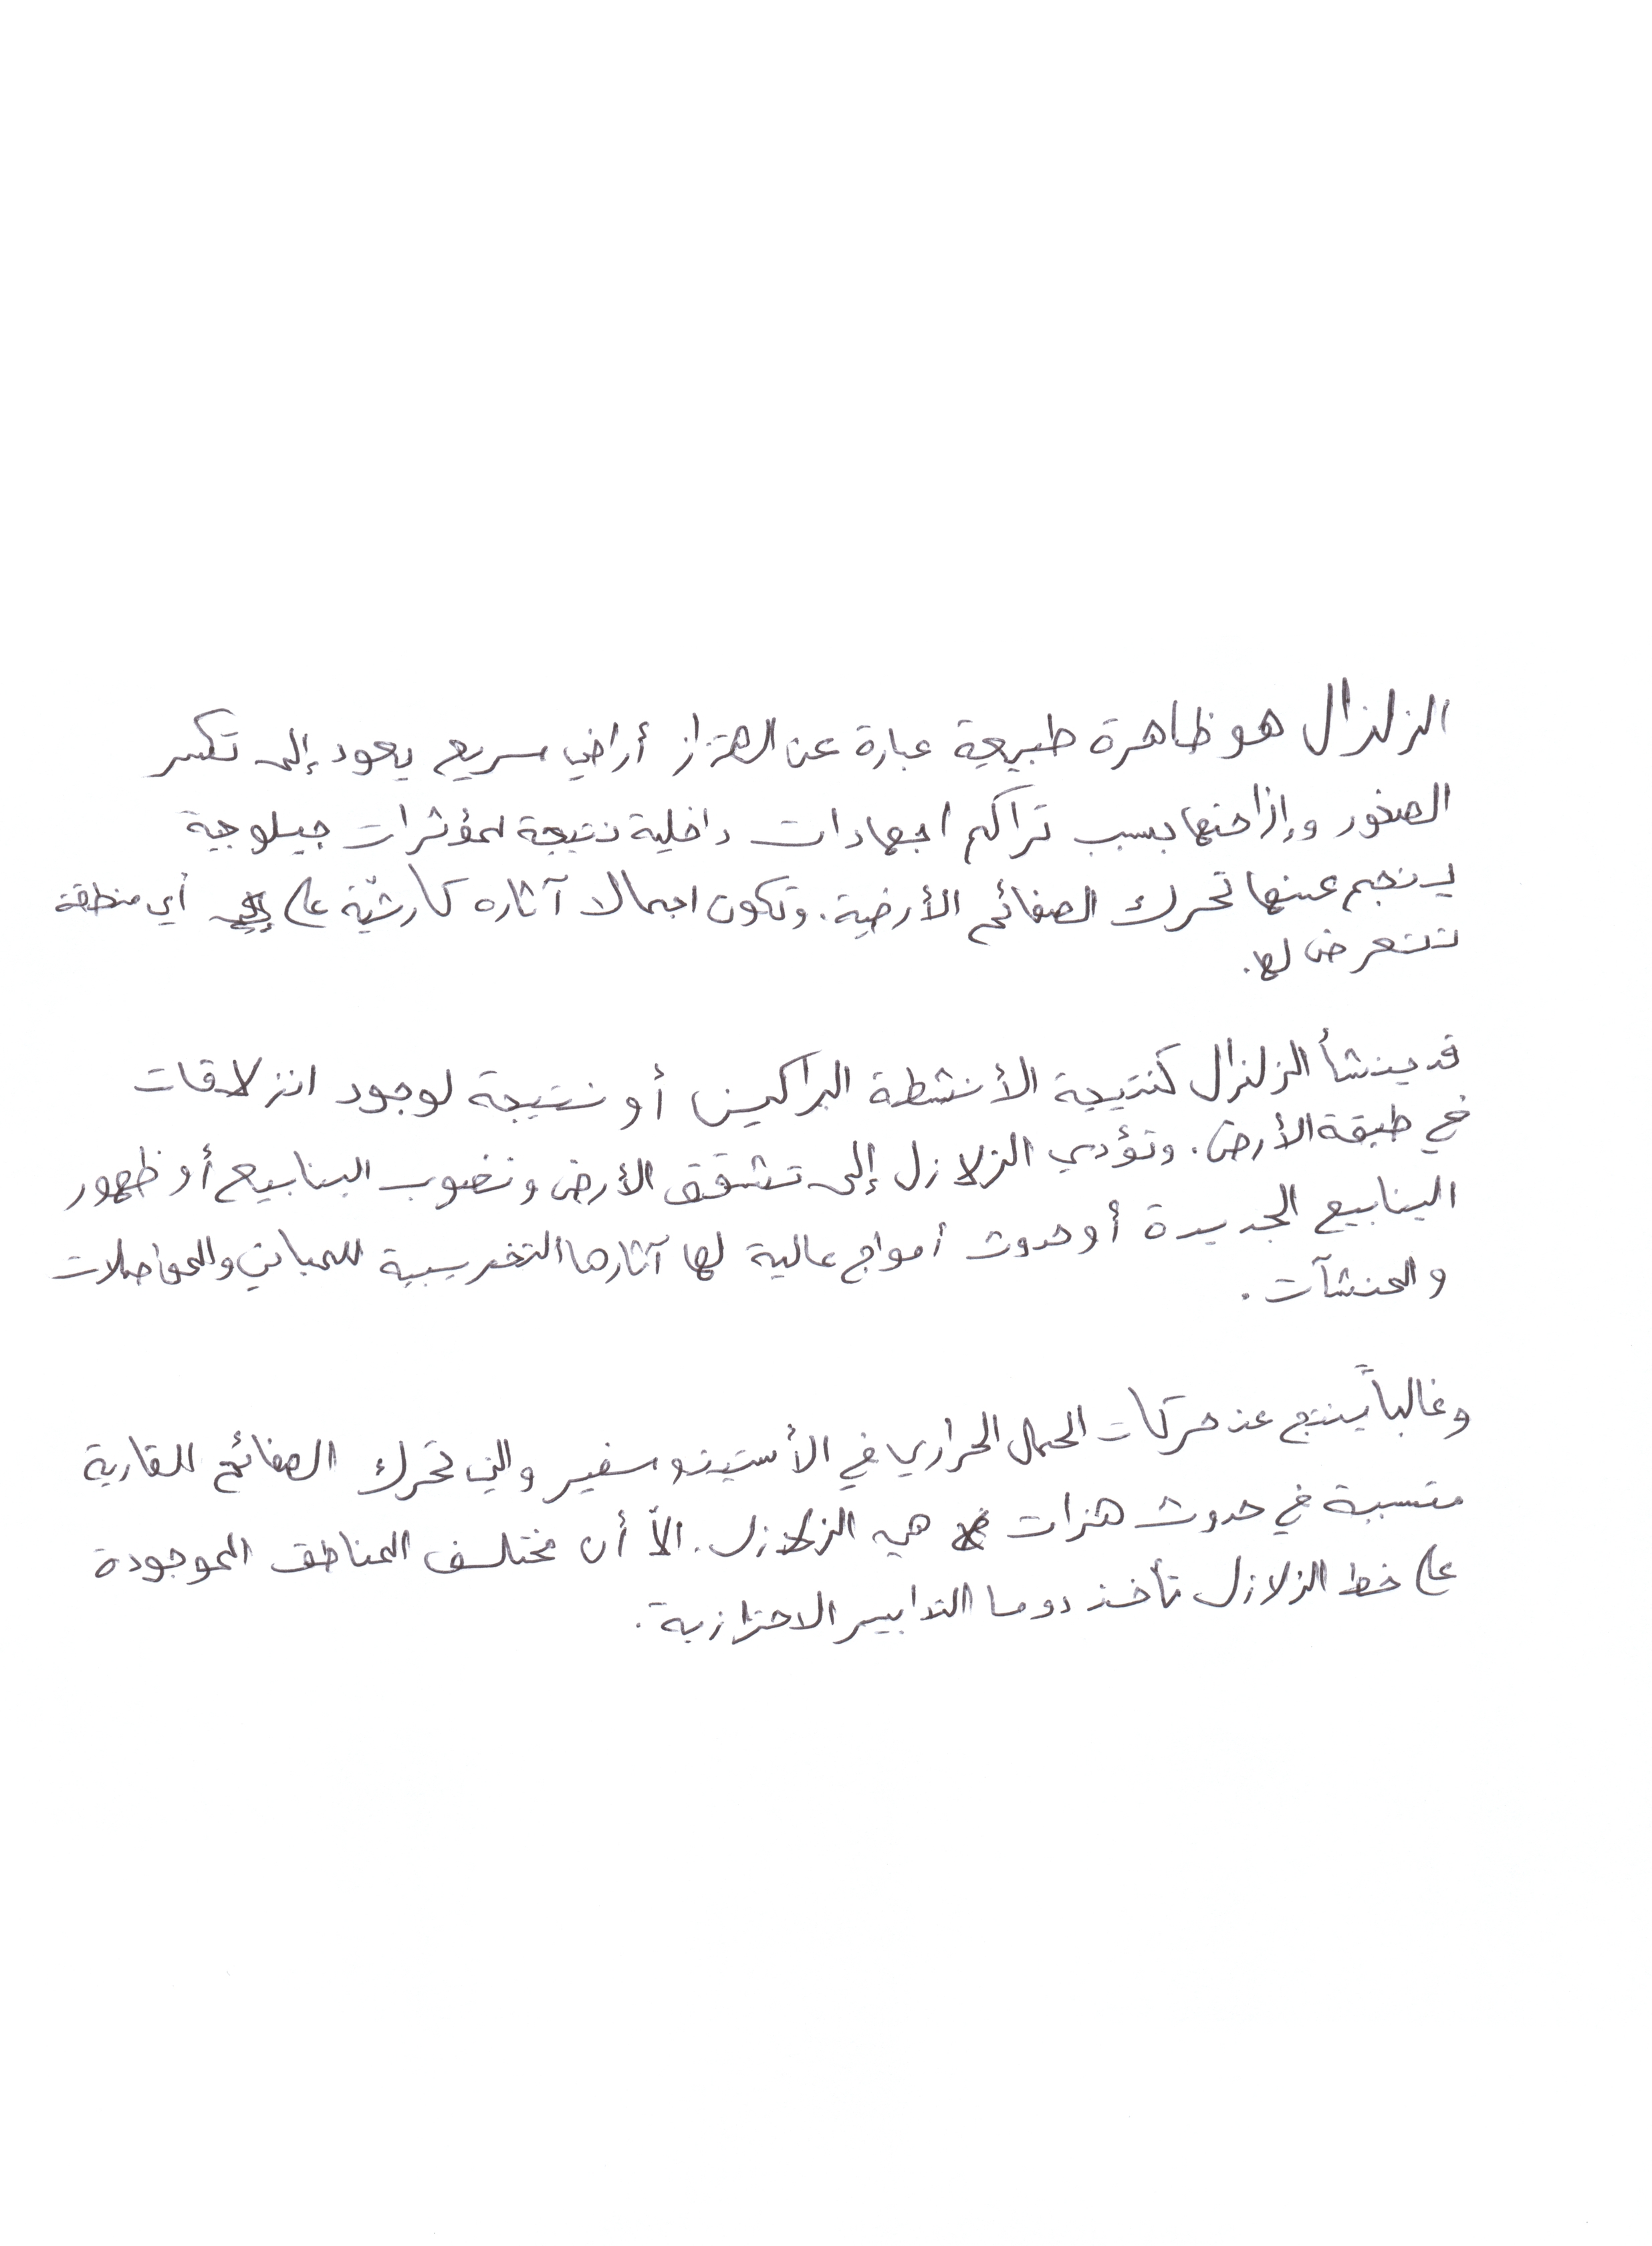 الزلزال هو ظاهرة طبيعية عبارة عن اهتزاز أراضي سريع يعود إلى تكسر
الصخور وإزاحتها بسبب تراكم اجهادات داخلية نتيجة لمؤثرات جيلوجية
ينجم عنها تحرك الصفائح الأرضية. وتكون اجمالا آثاره كارثيّة على أي منطقة
تتعرض لها.
قد ينشأ الزلزال كنتيجة الأنشطة البراكين أو نتيجة لوجود انزلاقات
في طبقة الأرض. وتؤدي الزلازل إلى تشقق الأرض ونضوب الينابيع أو ظهور
الينابيع الجديدة أو حدوث أمواج عالية لها آثارها التخريبية للمباني والمواصلات
والمنشآت.
وغالباً ينتج عن حركات الحمل الحراري في الأستينوسفير والتي تحرك الصفائح القارية
متسببة في حدوث هزات هي الزلازل. الاّ أن مختلف المناطق الموجودة
على خط الزلازل تأخذ دوما التدابير الاحترازية.